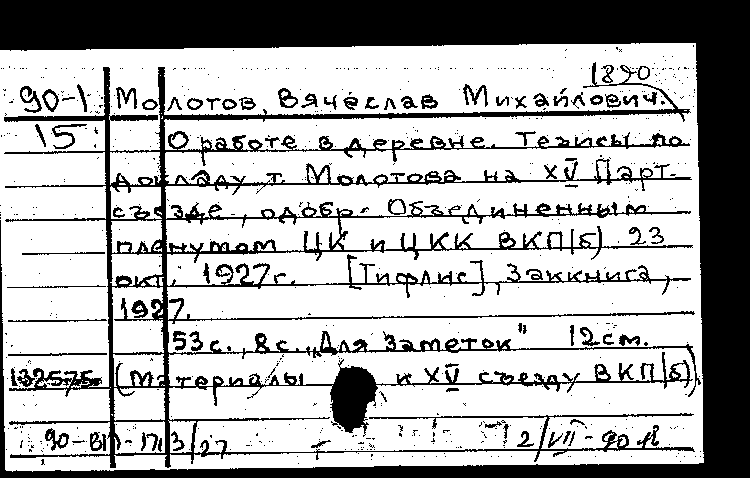 1890
90-1 Молотов, Вячеслав Михайлович.
15 О работе в деревне. Тезисы по
докладу т. Молотова на XV Парт-
съезде, одобр. Объединенным
пленумом ЦК и ЦКК ВКП(б) 23
окт. 1927г. [Тифлис], Заккнига,
1927.
53 с., 8 с. „Для заметок" 12 см.
132575 (Материалы к XV съезду ВКП(б)).
2/VII-90